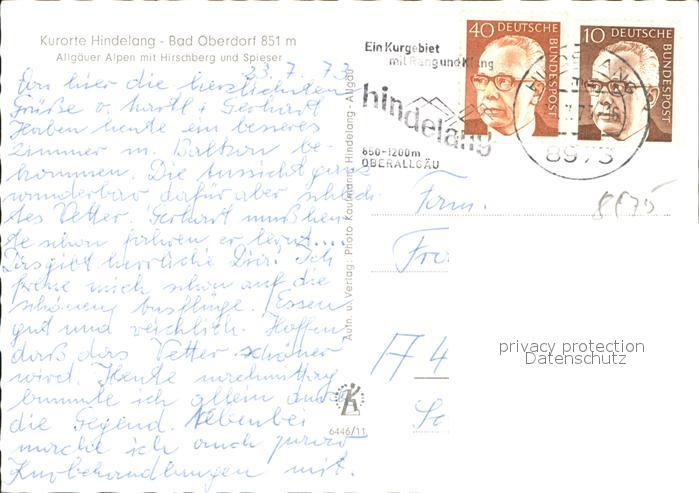 Kurorte Hindelang - Bad Oberdorf 851 m
Allgäuer Alpen mit Hirschberg und Spieser
23.7.73
Von hier die herzlichsten
Grüße v. Martl + Gerhart
Haben heute ein besseres
Zimmer m. Balkon be-
kommen. Die Aussicht ganz
wunderbar dafür aber schlech-
tes Wetter. Gerhart muß heu-
te schon fahren er lernt....
Das gibt herrliche Dia! Ich
freue mich schon auf die
schönen Ausflüge. Essen
gut und reichlich. Hoffen
daß das Wetter schöner
wird. Heute nachmittag
bummle ich allein durch
die Gegend. Nebenbei
mache ich auch
Kurbehandlungen mit.
Autn. u. Verlag: Photo Kaufmann, Hindelang-Allgäu
6446/11
Ein Kurgebiet
mit Rang und Klang
hindelang
850-1200m
OBERALLGÄU
40 DEUTSCHE BUNDESPOST
10 DEUTSCHE BUNDESPOST
HINDELANG
8973
Fam.
A 4
privacy protection
Datenschutz